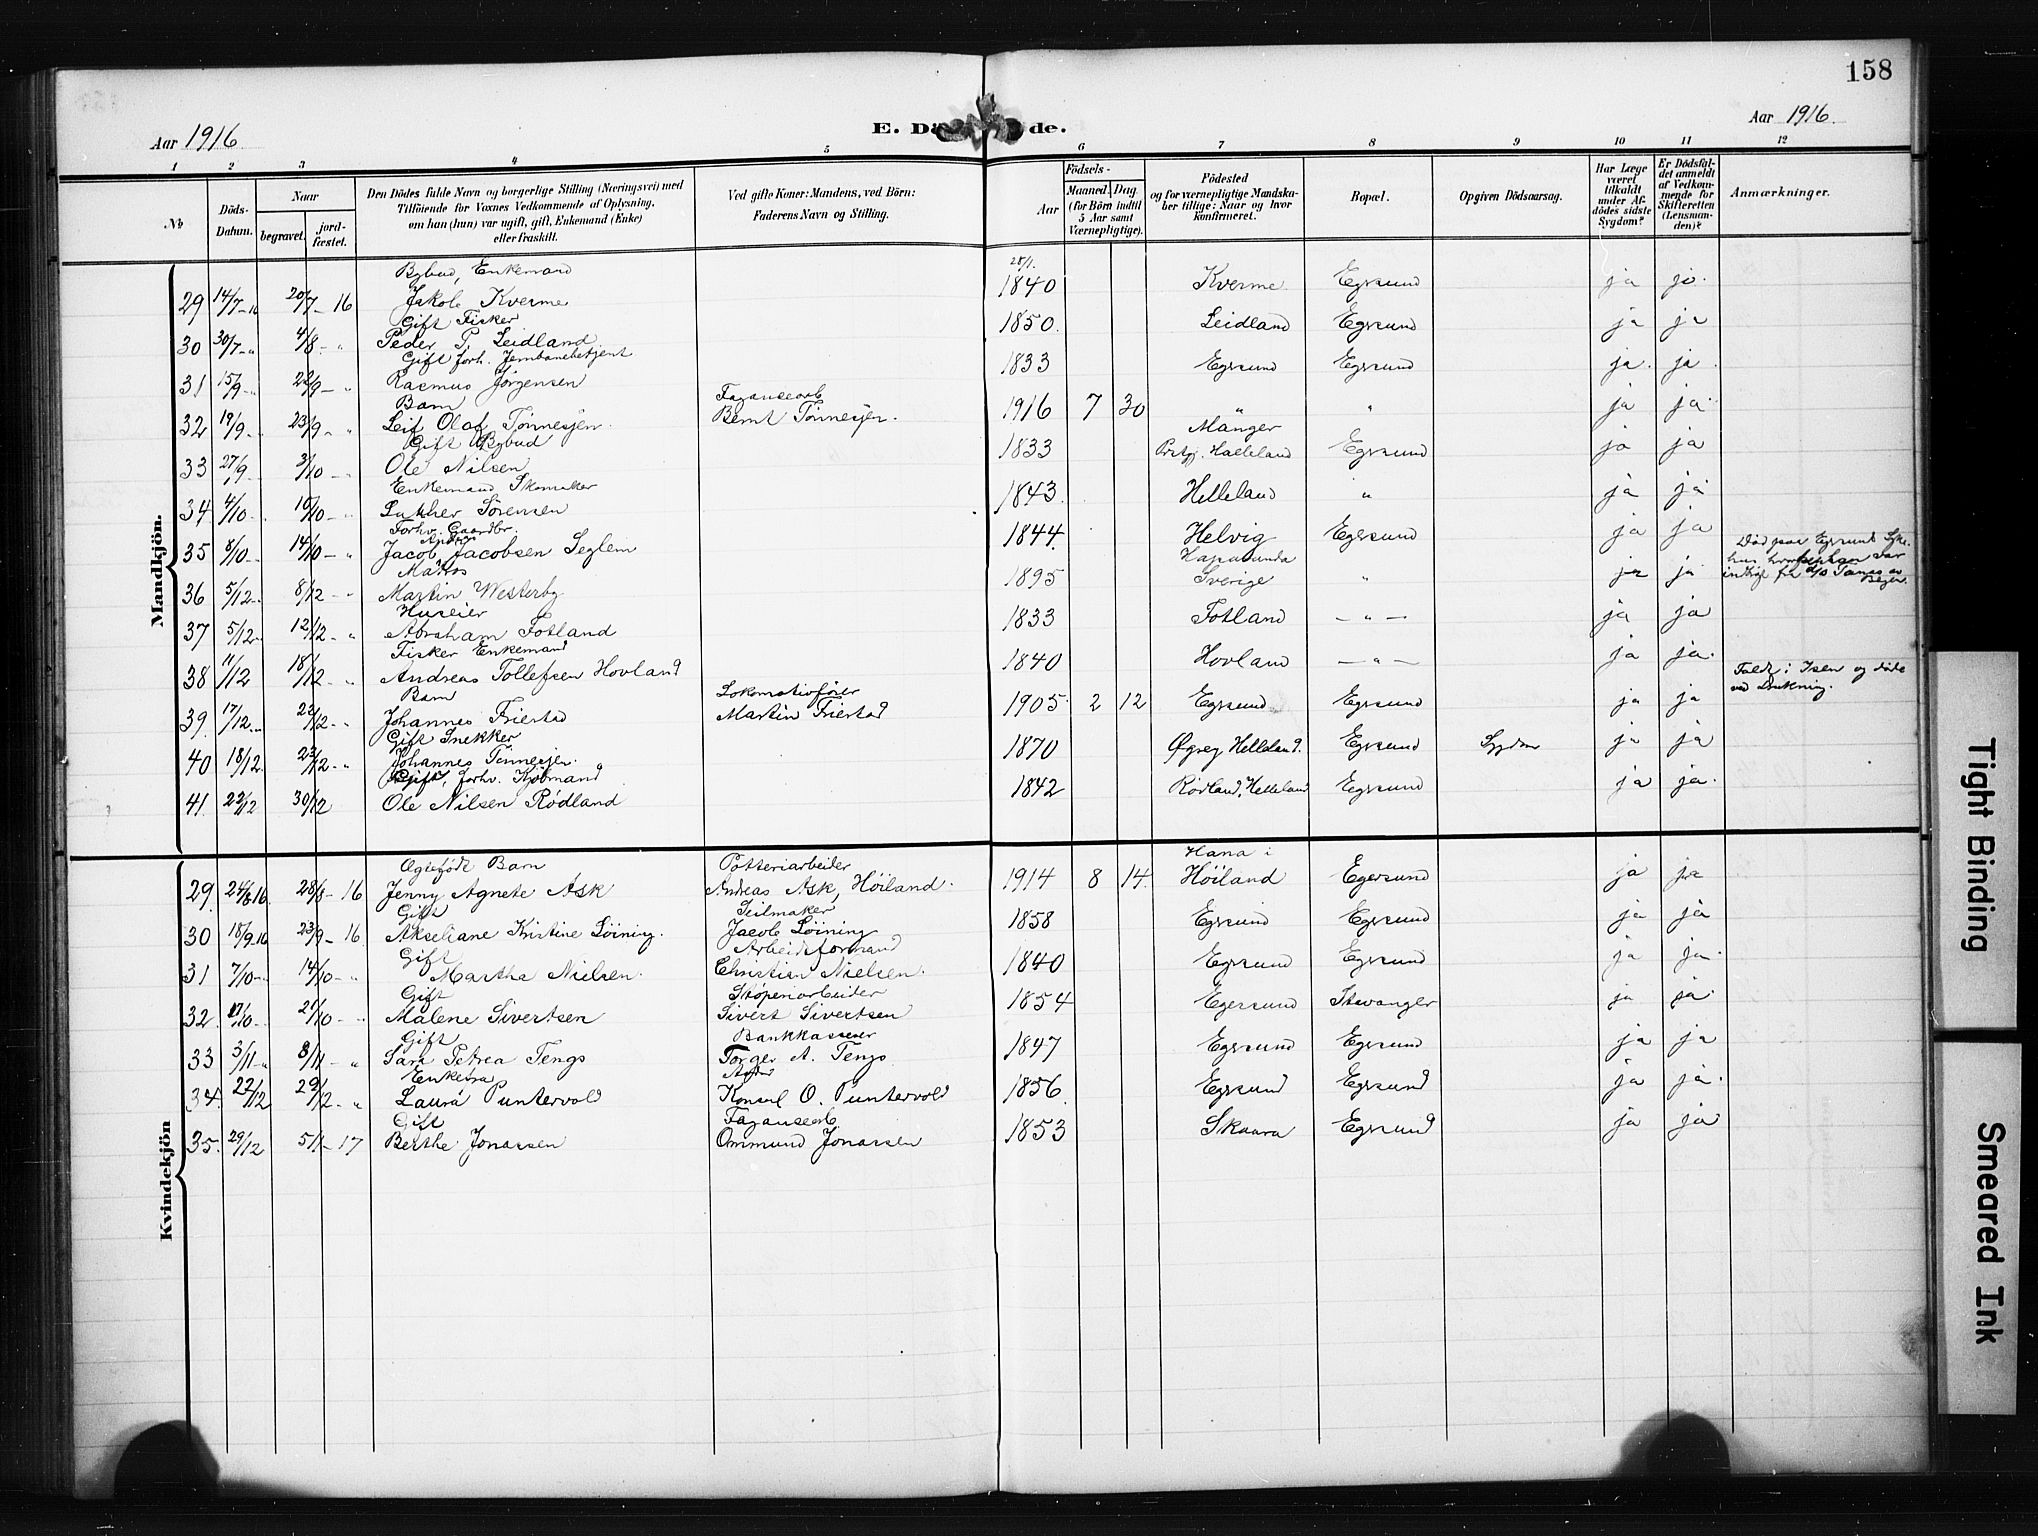 158
Aar 1916.
E. Dö de.
Aar 1916.
1 2 3 4 5 6 7 8 9 10 11 12
No
Döds-Datum.
Naar
begravet.
jord-fæstet.
Den Dödes fulde Navn og borgerlige Stilling (Næringsvei) med
Tilföiende for Voxnes Vedkommende af Oplysning,
om han (hun) var ugift, gift, Enkemand (Enke)
eller fraskilt.
Ved gifte Koner: Mandens, ved Börn:
Faderens Navn og Stilling.
Födsels-
Aar
Maaned. Dag.
(for Börn indtil
5 Aar samt
Værnepligtige).
Födested
og for værnepligtige Mandska-
ber tillige: Naar og hvor
konfirmeret.
Bopæl.
Opgiven Dödsaarsag.
Har Læge
været
tilkaldt
under Af-
dödes sidste
Sygdom?
Er Dödsfal-
det anmeldt
af Vedkom-
mende for
Skifteretten
(Lensman-
den)?
Anmærkninger.
Mandkjön.
Bybud, Enkemand 28/1.
29 14/7-16 20/7-16 Jakob Kverme 1840 Kverme Egrsund ja ja.
Gift Fisker
30 30/7-" 4/8-" Peder P. Leidland 1850. Leidland Egrsund ja ja
Gift forh. Jernbanebetjent
31 15/9-" 22/9-" Rasmus Jørgensen 1833 Egrsund Egrsund ja. ja.
Barn Fajansearb
32 19/9-" 23/9-" Leif Olaf Tønnesjen. Bernt Tønnesjen. 1916 7 30 " " ja ja.
Gift Bybud Manger
33 27/9-" 3/10-" Ole Nilsen 1833 Prstgj. Haelleland Egrsund ja ja
Enkemand Skomaker
34 4/10-" 10/10-" Sørensen 1843. Helleland " ja ja
Forhv. Gaardbr.
35 8/10-" 14/10-" Jacob Jacobsen Seglem 1844. Helvig Egersund ja ja
Matros Haparanda
36 5/12-" 8/12-" Martin Westerby 1895 Sverige " ja ja Död paa Egrsund Syke-
hus
Huseier
37 5/12-" 12/12-" Abraham Fotland 1833 Fotland -"- ja ja
Fisker Enkemand
38 11/12 18/12-" Andreas Tollefsen Hovland 1840 Hovland -"- ja ja.
Barn Lokomotivfører Faldt i Isen og døde
39. 17/12-" 22/12-" Johannes Friestad Martin Friestad 1905 2 12 Egrsund Egrsund ja ja ved Drukning.
Gift Snekker
40 18/12. 23/12-" Johannes Tønnesjen. 1870 Øgrey Helleland. Egrsund Sygdom ja ja
Gift, forhv. Kjøbmand
41. 23/12 30/12 Ole Nilsen Rødland 1842 Rødland, Helleland Egrsund ja ja.
Kvindekjön
Ægtefødt Barn Potteriarbeider Hana i
29. 24/8 16. 28/8-16 Jenny Agnete Ask Andreas Ask, Høiland. 1914 8 14. Høiland Egersund ja ja
Gift Seilmaker
30 18/9-16 23/9-16 Akseliane Kristine Løining. Jacob Løining 1858 Egrsund Egrsund ja ja
Gift Arbeidsformand
31 7/10-" 14/10-" Martha Nielsen. Christian Nielsen. 1840 Egrsund Egrsund ja ja.
Gift Støperiarbeider
32. 17/10-" 21/10-" Malene Sivertsen Sivert Sivertsen 1854 Egersund Stavanger ja ja.
Gift Bankkasserer
33 3/11-" 8/11-" Sara Petrea Tengs Torger A. Tengs 1847 Egrsund Egrsund ja ja
Enkefru
34. 22/12 29/12-" Laura Puntervold Konsul O. Puntervold 1856. Egrsund Egrsund ja ja.
Gift Fajansearb
35. 29/12 5/1-17 Berthe Jonassen Ommund Jonassen 1853 Skaara Egrsund ja ja
Tight Binding
Smeared Ink